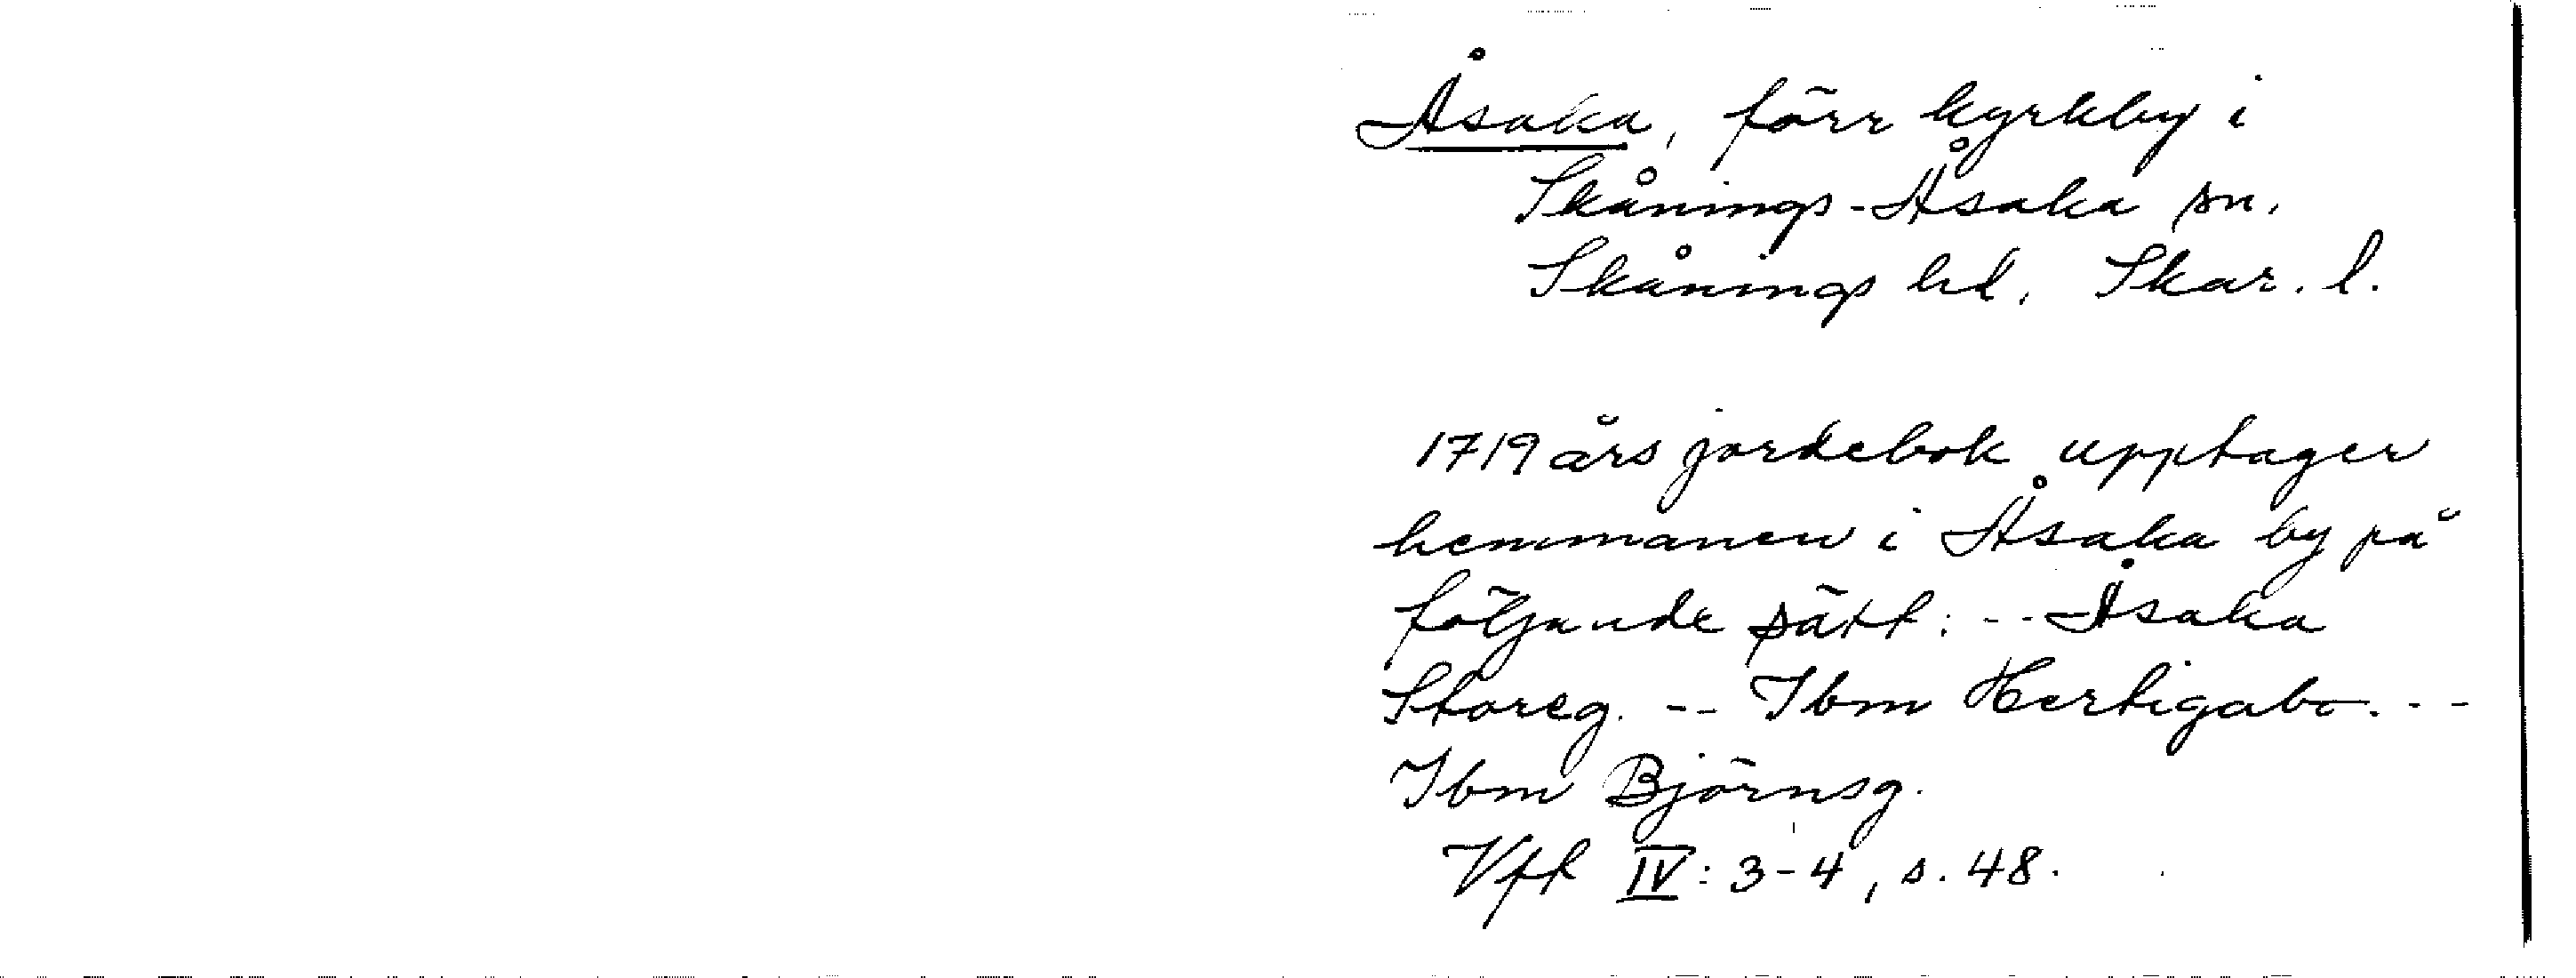 Åsaka, förr kyrkby i
Skånings-Åsaka sn.
Skånings hd. Skar. l.
1719 års jordebok upptager
hemmanen i Åsaka by på
följande sätt: -- Åsaka
Storeg. -- Ibm Hertigabo. --
Ibm Björnsg.
Vft IV: 3-4, s. 48.